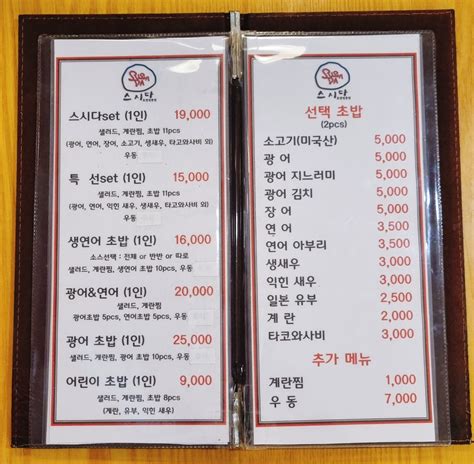 스시다
스시다set (1인) 19,000
샐러드, 계란찜, 초밥 11pcs
(광어, 연어, 장어, 소고기, 생새우, 타코와사비 외)
우동
특 선set (1인) 15,000
샐러드, 계란찜, 초밥 11pcs
(광어, 연어, 익힌 새우, 생새우, 타코와사비 외)
우동
생연어 초밥 (1인) 16,000
소스선택 : 전체 or 반반 or 따로
샐러드, 계란찜, 생연어 초밥 10pcs, 우동
광어&연어 (1인) 20,000
샐러드, 계란찜
광어초밥 5pcs, 연어초밥 5pcs, 우동
광어 초밥 (1인) 25,000
샐러드, 계란찜, 광어 초밥 10pcs, 우동
어린이 초밥 (1인) 9,000
샐러드, 계란찜, 초밥 8pcs
(계란, 유부, 익힌 새우)
스시다
선택 초밥
(2pcs)
소고기(미국산) 5,000
광 어 5,000
광어 지느러미 5,000
광어 김치 5,000
장 어 5,000
연 어 3,500
연어 아부리 3,500
생새우 3,000
익힌 새우 3,000
일본 유부 2,500
계 란 2,000
타코와사비 3,000
추가 메뉴
계란찜 1,000
우 동 7,000